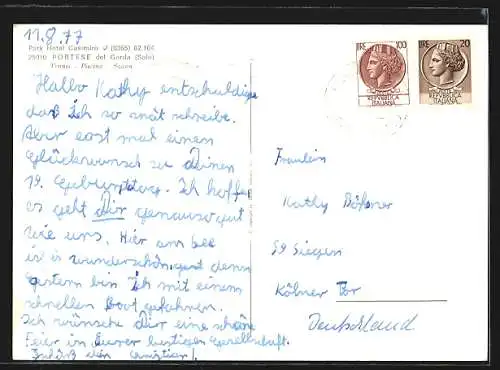 11.8.77
Park Hotel Casimiro (0365) 62.104
25010 PORTESE del Garda (Salò)
Tennis - Piscina - Sauna
Hallo Kathy entschuldige
daß ich so spät schreibe.
Aber erst mal einen
Glückwunsch zu deinen
19. Geburtstag. Ich hoffe
es geht dir genausogut
wie uns. Hier am See
ist es wunderschön,
Gestern bin ich mit einem
schnellen Boot gefahren.
Ich wünsche dir eine schöne
Feier in Eurer lustigen Gesellschaft.
LIRE 100
REPVBBLICA
ITALIANA
LIRE 20
REPVBBLICA
ITALIANA
Fräulein
Kathy
59 Siegen
Kölner Tor
Deutschland